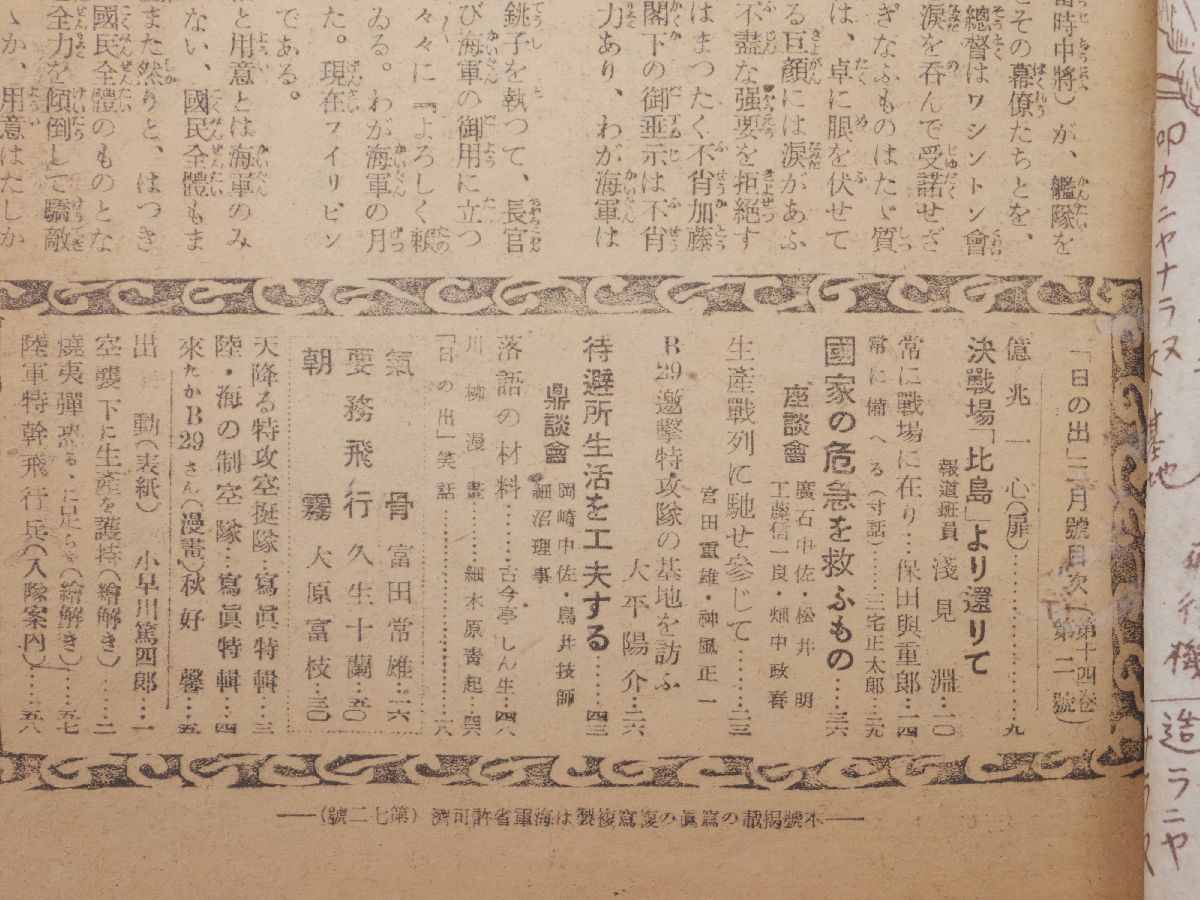 當時中將）が、艦隊を
とその幕僚たちとを、
總督はワシントン會
淚を呑んで受諾せざ
ぎなふものはたゞ質
は、卓に眼を伏せて
る巨顔には淚があふ
不盡な强要を拒絕す
はまつたく不肖加藤
閣下の御垂示は不肖
力あり、わが海軍は
銚子を執つて、長官
び海軍の御用に立つ
々々に『よろしく賴
ゐる。わが海軍の月
た。現在フイリピン
である。
と用意とは海軍のみ
ない、國民全體もま
また然りと、はつき
國民全體のものとな
全力を傾倒して驕敵
か、用意はたしか
「日の出」二月號目次（第十四卷第二號）
億兆一心（扉）…………九
決戰場「比島」より還りて
報道班員 淺見淵…一〇
常に戰場に在り…保田與重郎…一四
常に備へる（対話）…三宅正太郎…二九
國家の危急を救ふもの…三六
座談會 廣石中佐・松井明 工藤信一良・畑中政春
生產戰列に馳せ參じて…二三
宮田重雄・神風正一
B29邀擊特攻隊の基地を訪ふ
大平陽介…二六
待避所生活を工夫する…四三
鼎談會 岡崎中佐・鳥井技師 細沼理事
落語の材料……古今亭しん生…四八
川柳漫畫……細木原靑起…四六
「日の出」笑話……一八
氣骨 富田常雄…一六
要務飛行 久生十蘭…五〇
朝霧 大原富枝…三〇
天降る特攻空挺隊…寫眞特輯…三
陸・海の制空隊…寫眞特輯…四
來たかB29さん（漫畫）秋好馨…五
出動（表紙） 小早川篤四郎…一
空襲下に生產を護持（繪解き）…二
燒夷彈恐るゝに足らず（繪解き）…五七
陸軍特幹飛行兵（入隊案內）…五八
本號揭載の寫眞の複寫複製は海軍省許可濟（第七二號）